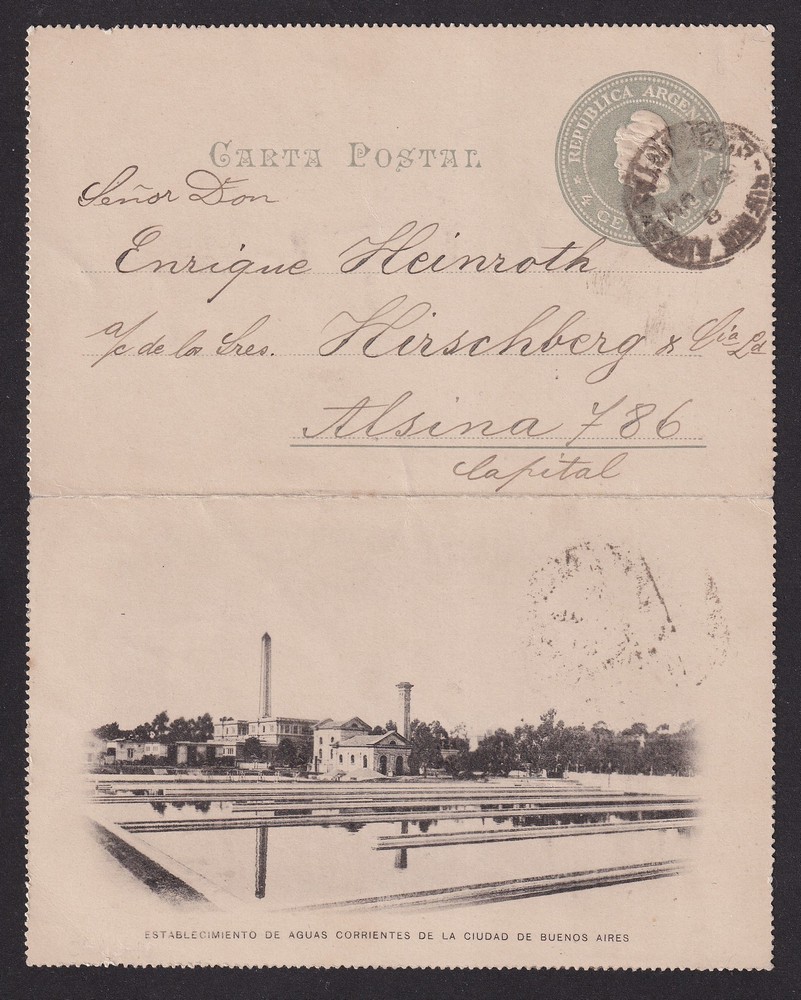 REPUBLICA ARGEN
4 CEN
CARTA POSTAL
Señor Don
Enrique Heinroth
a/c de los Sres. Hirschberg & Cía Ld
Alsina 786
Capital
ESTABLECIMIENTO DE AGUAS CORRIENTES DE LA CIUDAD DE BUENOS AIRES